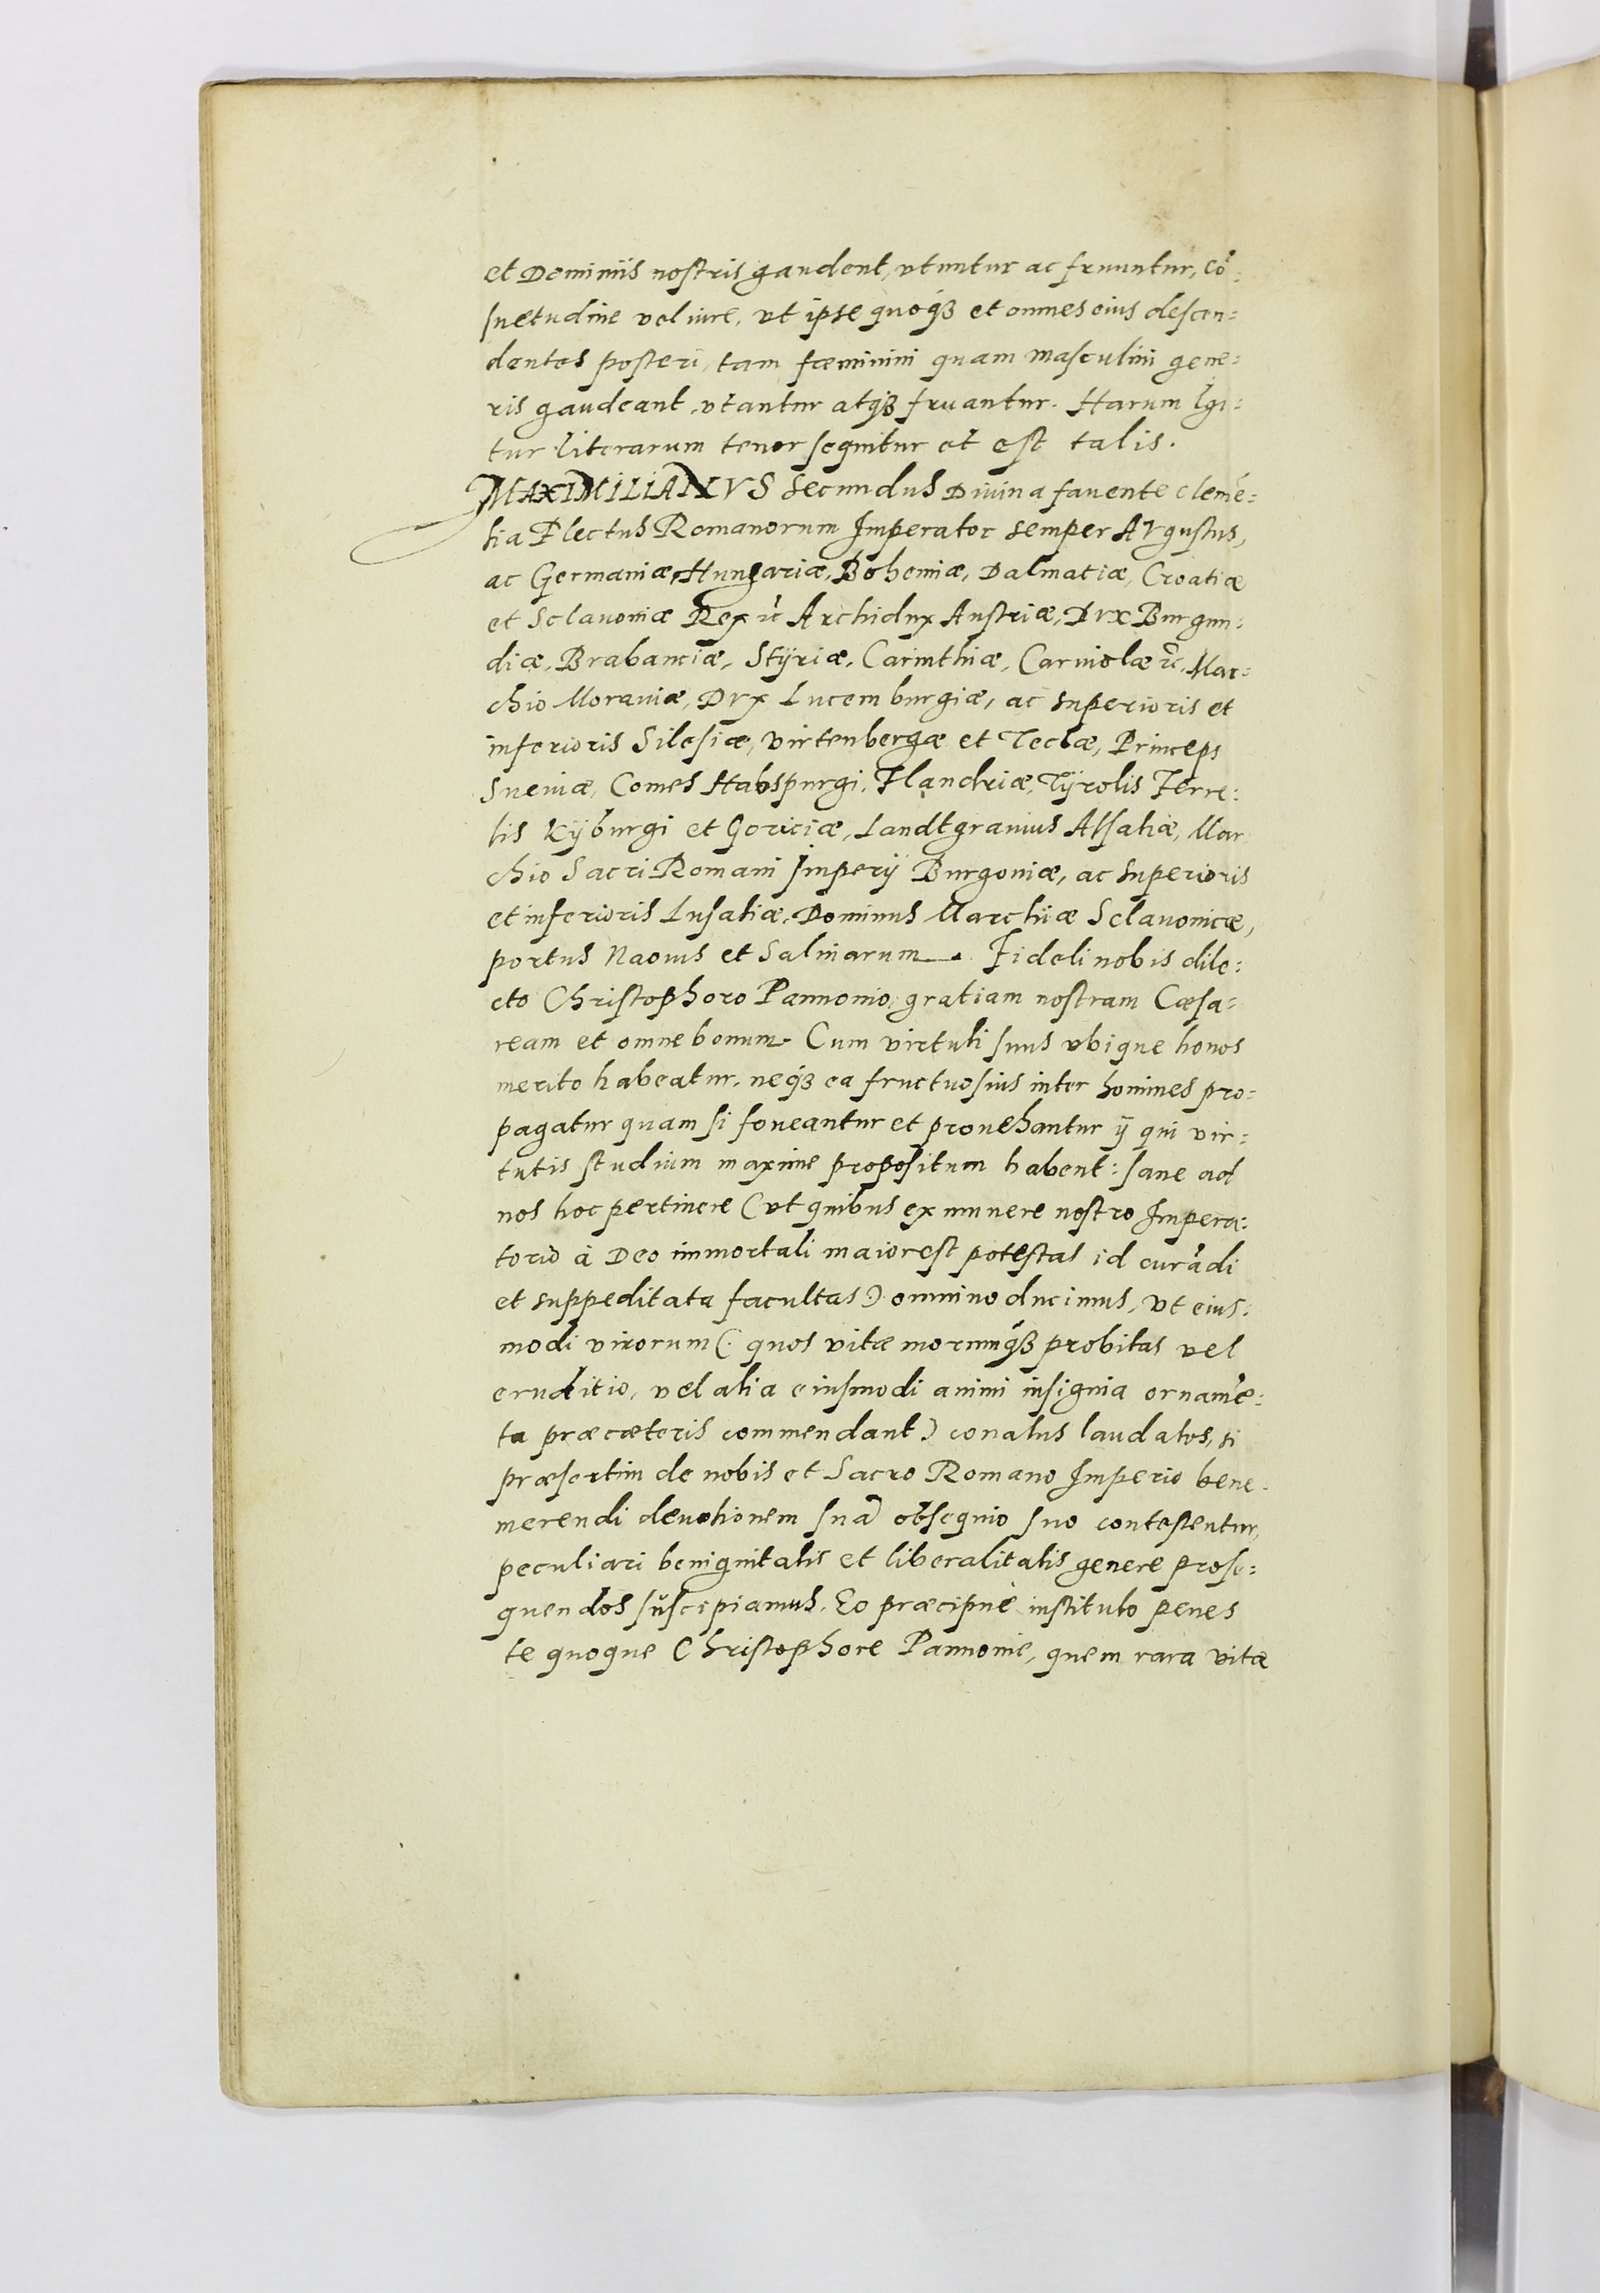 et Dominiis nostris gaudent, vtuntur ac fruuntur, cō-
suetudine vel iure, vt ipse quoqꝫ et omnes eius descen=
dentes posteri, tam fœminini quam masculini gene=
ris gaudeant, vtantur atqꝫ fruantur. Harum Igi=
tur literarum tenor sequitur et est talis.
MAXIMILIANVS Secundus Diuina fauente clemē=
tia Electus Romanorum Imperator semper AVgustus,
ac Germaniæ, Hungariæ, Bohemiæ, Dalmatiæ, Croatiæ
et Sclauoniæ Rex ꝛc Archidux Austriæ, DVX Burgun=
diæ, Brabantiæ, Stÿriæ, Carinthiæ, Carniolæ ꝛc, Mar=
chio Morauiæ, DVX Lucemburgiæ, ac superioris et
inferioris Silesiæ, Virtenbergæ et Teckæ, Princeps
Sueuiæ, Comes Habspurgi, Flandriæ, Tÿrolis Ferre=
tis Kÿburgi et Goriciæ, Landtgrauius Alsatiæ, Mar
chio Sacri Romani Imperÿ Burgouiæ, ac superioris
et inferioris Lusatiæ, Dominus Marchiæ Sclauonicæ,
portus Naonis et Salinarum. Fideli nobis dile=
cto Christophoro Pannonio, gratiam nostram Cæsa=
ream et omne bonum. Cum virtuti suus vbique honos
merito habeatur, neqꝫ ea fructuosius inter homines pro=
pagatur quam si foueantur et prouehantur ÿ qui vir=
tutis studium maxime propositum habent: sane ad
nos hoc pertinere (vt quibus ex munere nostro Impera=
torio à Deo immortali maior est potestas id curādi
et suppeditata facultas) omnino ducimus, vt eius=
modi virorum (quos vitæ morumqꝫ probitas vel
eruditio, vel alia eiusmodi animi insignia ornamē=
ta præ cæteris commendant) conatus laudatos, si
præsertim de nobis et Sacro Romano Imperio bene
merendi deuotionem suā obsequio suo contestentur,
peculiari benignitatis et liberalitatis genere prose=
quendos suscipiamus. Eo præcipuè instituto penes
te quoque Christophore Pannonie, quem rara vitæ